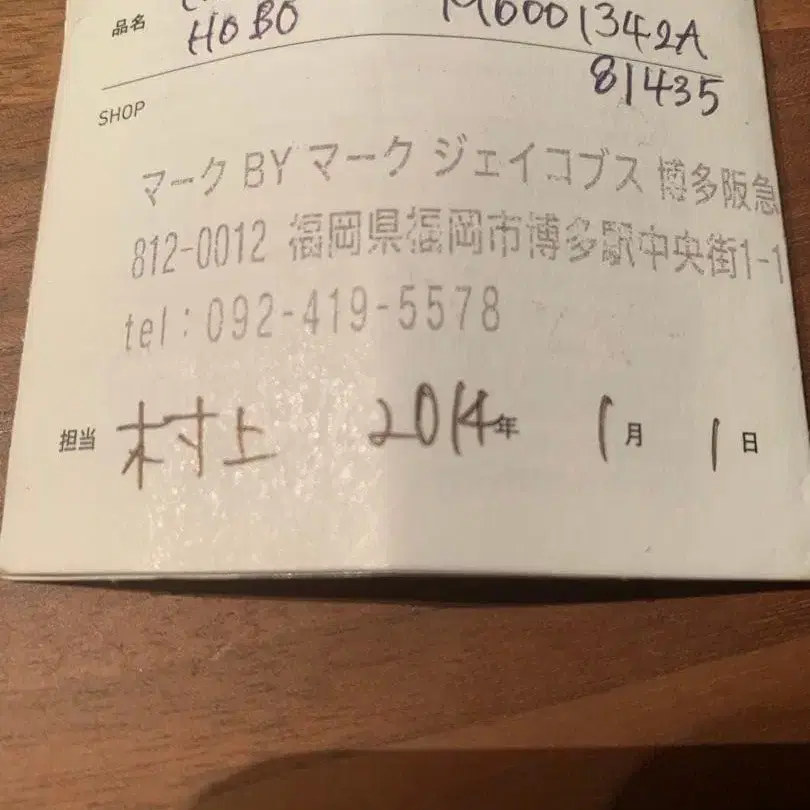 品名 HOBO M6001342A
81435
SHOP
マーク BY マーク ジェイコブス 博多阪急
812-0012 福岡県福岡市博多駅中央街1-1
tel:092-419-5578
担当 村上 2014年 1月 1日